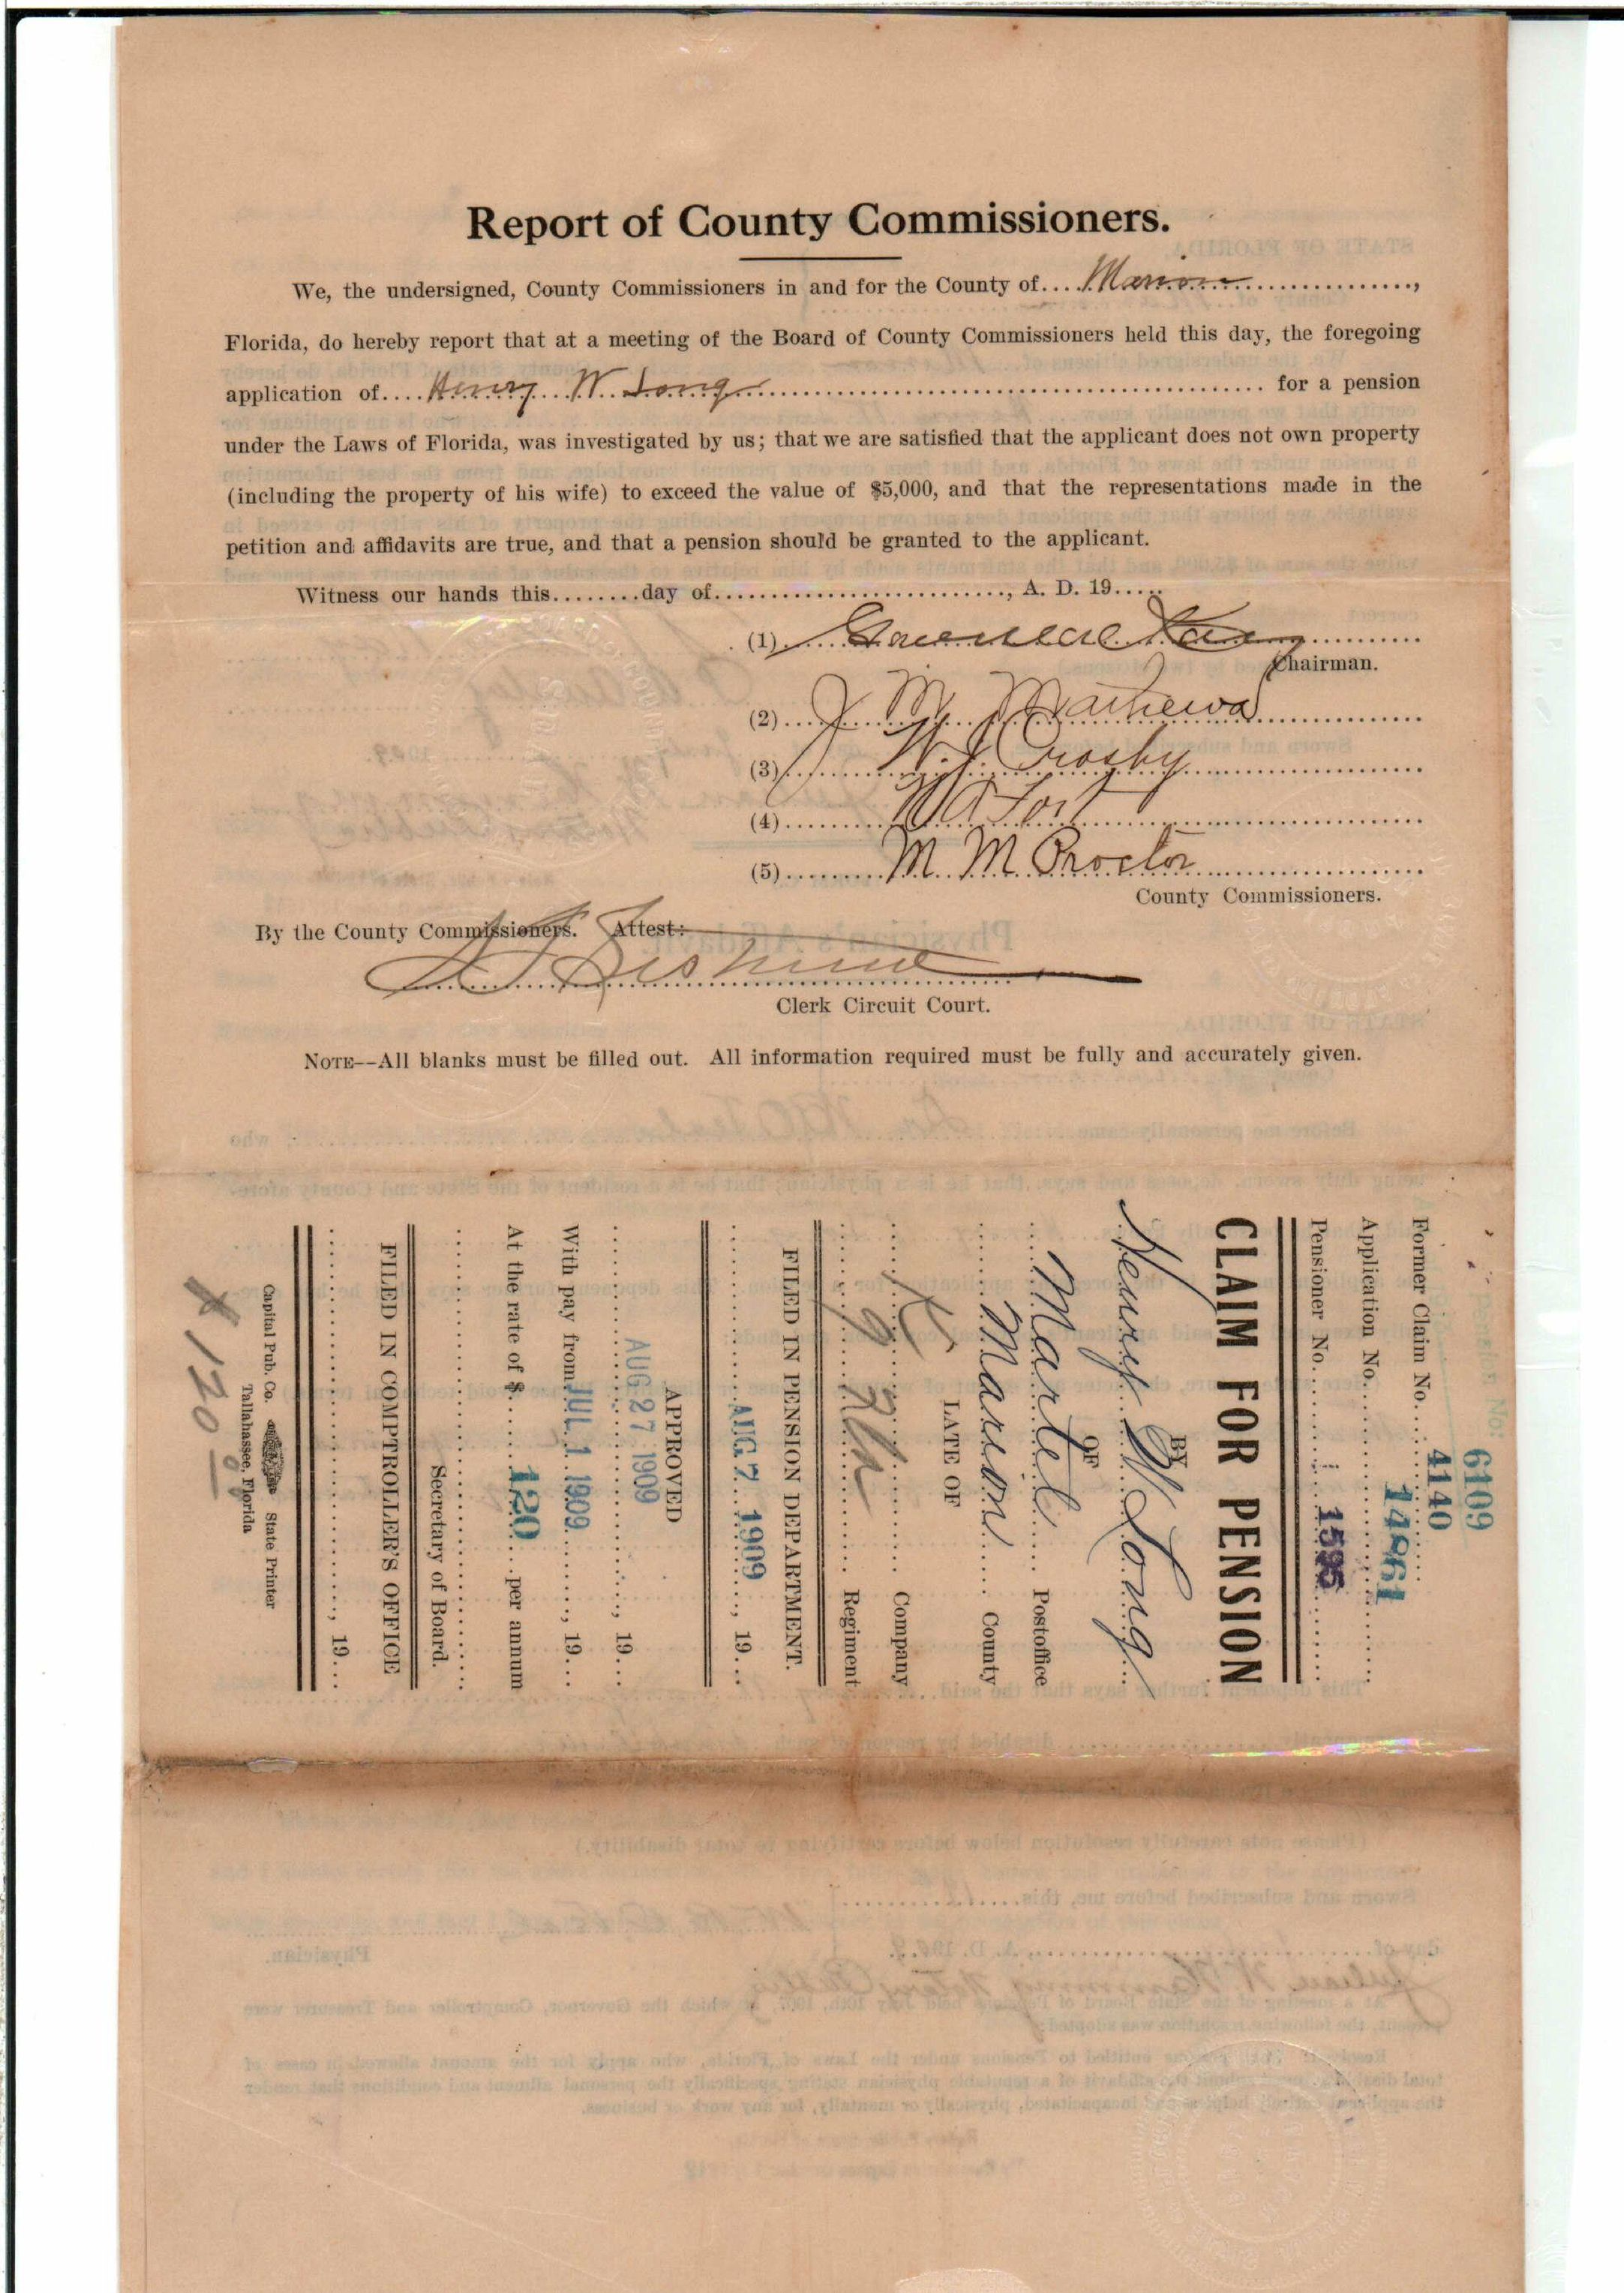 Report of County Commissioners.
We, the undersigned, County Commissioners in and for the County of....Marion....................,
Florida, do hereby report that at a meeting of the Board of County Commissioners held this day, the foregoing
application of....Henry W. Long.................... for a pension
under the Laws of Florida, was investigated by us; that we are satisfied that the applicant does not own property
(including the property of his wife) to exceed the value of $5,000, and that the representations made in the
petition and affidavits are true, and that a pension should be granted to the applicant.
Witness our hands this........day of............................, A. D. 19.....
(1)
Chairman.
(2) J M Mathews
(3) W. J. Crosby
(4) W A Fort
(5) M. M. Proctor
County Commissioners.
By the County Commissioners. Attest:
Clerk Circuit Court.
NOTE--All blanks must be filled out. All information required must be fully and accurately given.
6109
Former Claim No. 4140
Application No. 14861
Pensioner No. 1595
CLAIM FOR PENSION
BY
Henry W Long
OF
Martel Postoffice
Marion County
LATE OF
K Company
9 Fla Regiment
FILED IN PENSION DEPARTMENT.
AUG 7 1909, 19...
APPROVED
AUG 27 1909, 19...
With pay from JUL 1 1909, 19...
At the rate of $ 120 per annum
Secretary of Board.
FILED IN COMPTROLLER'S OFFICE
, 19...
Capital Pub. Co. State Printer
Tallahassee, Florida
$120